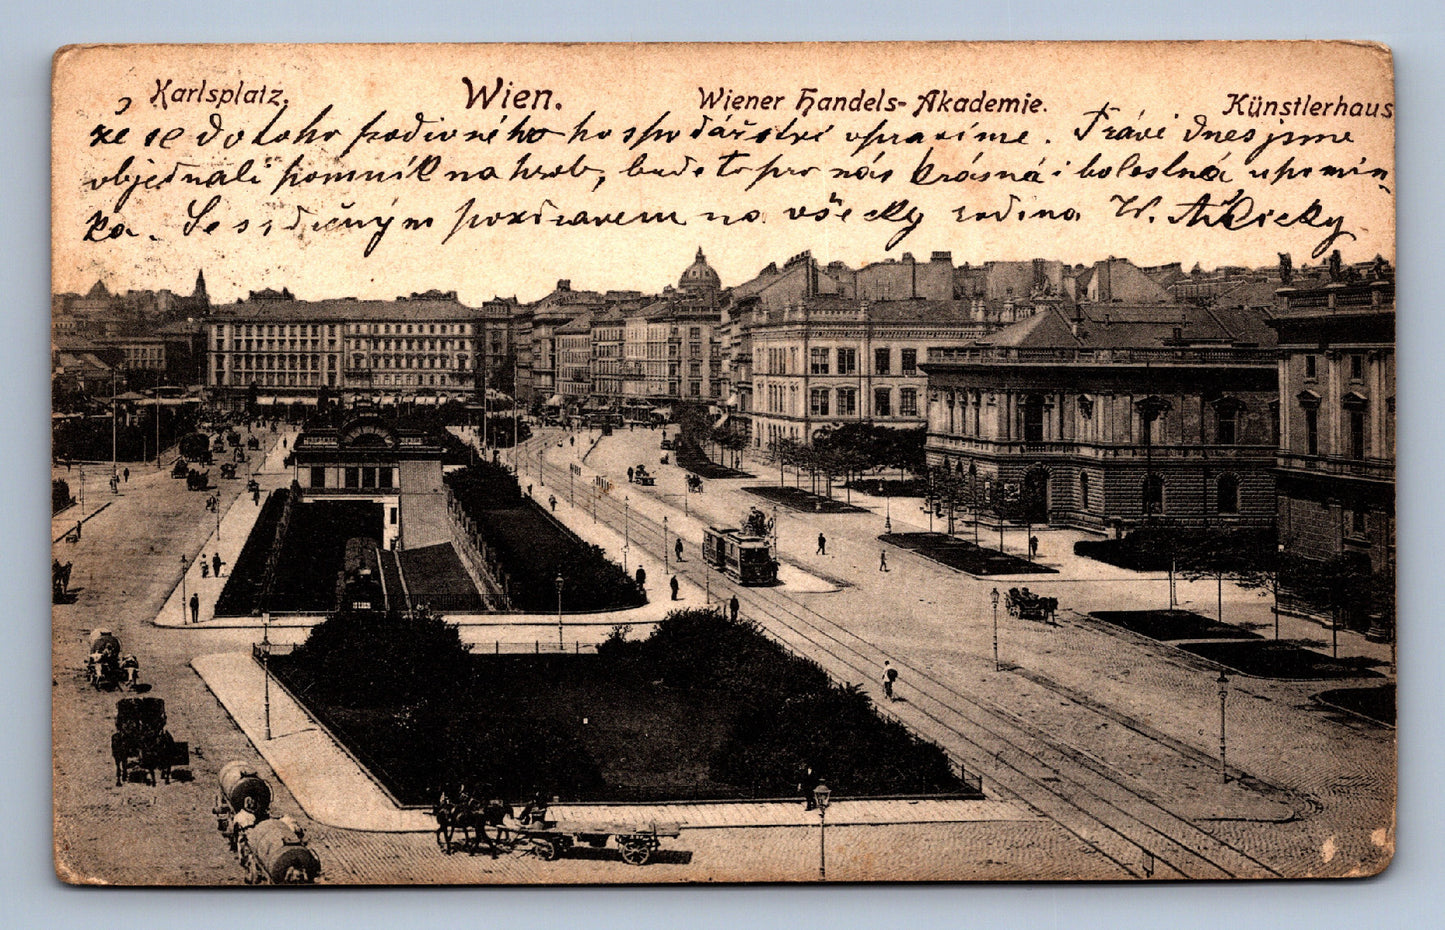 Karlsplatz. Wien. Wiener Handels-Akademie. Künstlerhaus
že se do toho podivného hospodářství vpravíme. Právě dnes jsme
objednali pomník na hrob, bude to pro nás krásná i bolestná upomín-
ka. Se srdečným pozdravem na všecky rodina